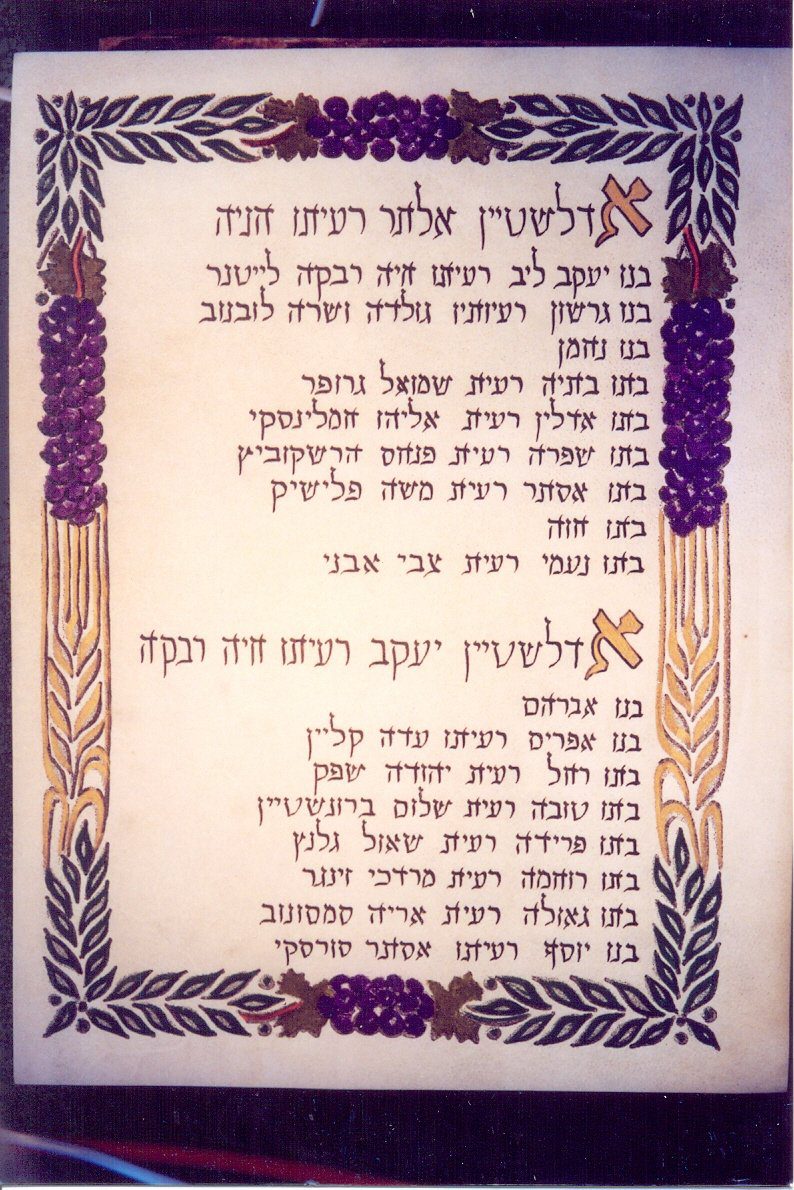 אדלשטיין אלתר רעיתו הניה
בנו יעקב ליב רעיתו חיה רבקה לייטנר
בנו גרשון רעיותיו גולדה ושרה לובנוב
בנו נחמן
בתו בתיה רעית שמואל גרופר
בתו אדלין רעית אליהו חמלינסקי
בתו שפרה רעית פנחס הרשקוביץ
בתו אסתר רעית משה פלישיק
בתו חוה
בתו נעמי רעית צבי אבני
אדלשטיין יעקב רעיתו חיה רבקה
בנו אברהם
בנו אפרים רעיתו עדה קליין
בתו רחל רעית יהודה שפק
בתו טובה רעית שלום ברונשטיין
בתו פרידה רעית שאול גלנץ
בתו רוחמה רעית מרדכי זינגר
בתו גאולה רעית אריה סמסונוב
בנו יוסף רעיתו אסתר סורסקי